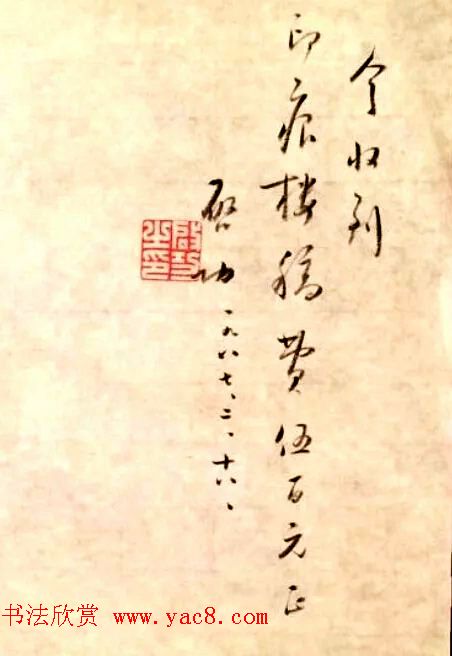 今收到
印痕楼稿费伍百元正
启功
一九八七、二、十六、
启功之印
书法欣赏 www.yac8.com